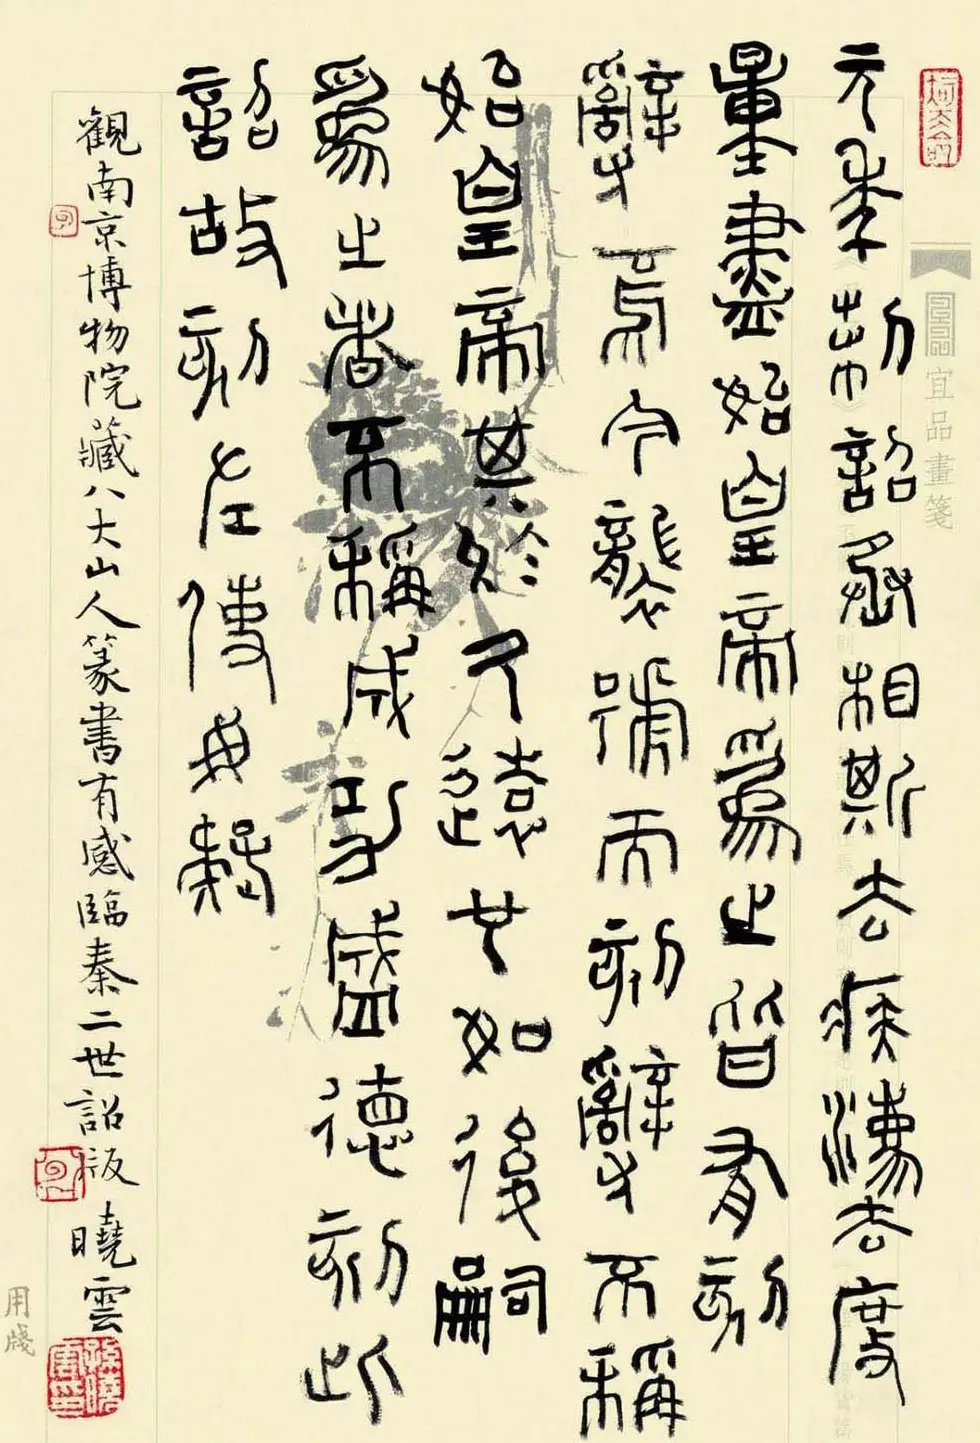 元年制詔丞相斯去疾灋度
量盡始皇帝爲之皆有刻
辭焉今襲號而刻辭不稱
始皇帝其於久遠也如後嗣
爲之者不稱成功盛德刻此
詔故刻左使毋疑
觀南京博物院藏八大山人篆書有感臨秦二世詔版 曉雲
孫曉雲印
宜品畫箋
用牋